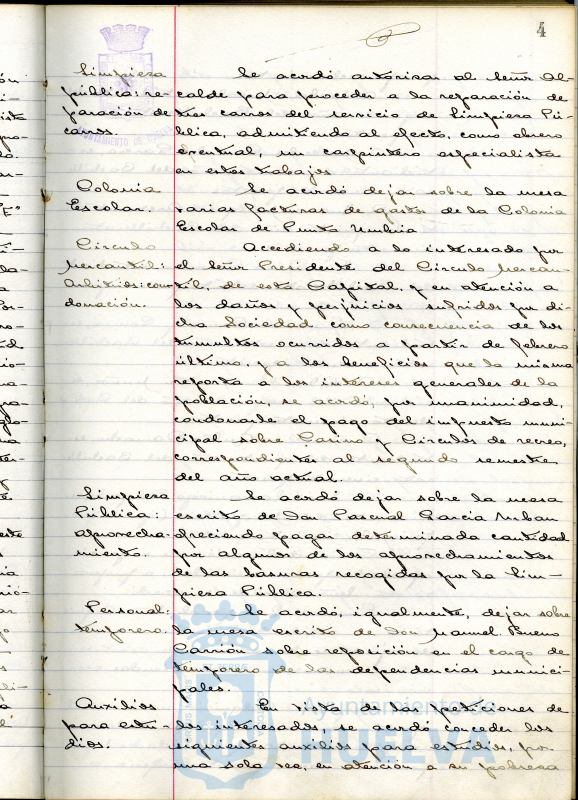 4
Limpieza
pública: re-
paración de
carros.
Se acordó autorizar al Señor Al-
calde para proceder a la reparación de
tres carros del servicio de Limpieza Pú-
blica, admitiendo al efecto, como obrero
eventual, un carpintero especialista
en estos trabajos.
Colonia
Escolar.
Se acordó dejar sobre la mesa
varias facturas de gastos de la Colonia
Escolar de Punta Umbria
Circulo
Mercantil:
Arbitrios: con-
donación.
Accediendo a lo interesado por
el Señor Presidente del Circulo Mercan-
til, de esta Capital, y en atención a
los daños y perjuicios sufridos por di-
cha Sociedad como consecuencia de los
tumultos ocurridos a partir de febrero
último, y a los beneficios que la misma
reporta a los intereses generales de la
población, se acordó, por unanimidad,
condonarle el pago del impuesto muni-
cipal sobre Casino y Circulos de recreo,
correspondientes al segundo semestre
del año actual.
Limpieza
Pública:
aprovecha-
miento.
Se acordó dejar sobre la mesa
escrito de Don Pascual Garcia
ofreciendo pagar determinada cantidad
por algunos de los aprovechamientos
de las basuras recogidas por la Lim-
pieza Pública.
Personal:
temporero.
Se acordó, igualmente, dejar sobre
la mesa escrito de Don Manuel Bueno
Carrión sobre reposición en el cargo de
temporero de las dependencias munici-
pales.
Auxilios
para estu-
dios.
En vista de las peticiones de
los interesados, se acordó conceder los
siguientes auxilios para estudios, por
una sola vez, en atención a su pobreza
Ayuntamiento de
HUELVA